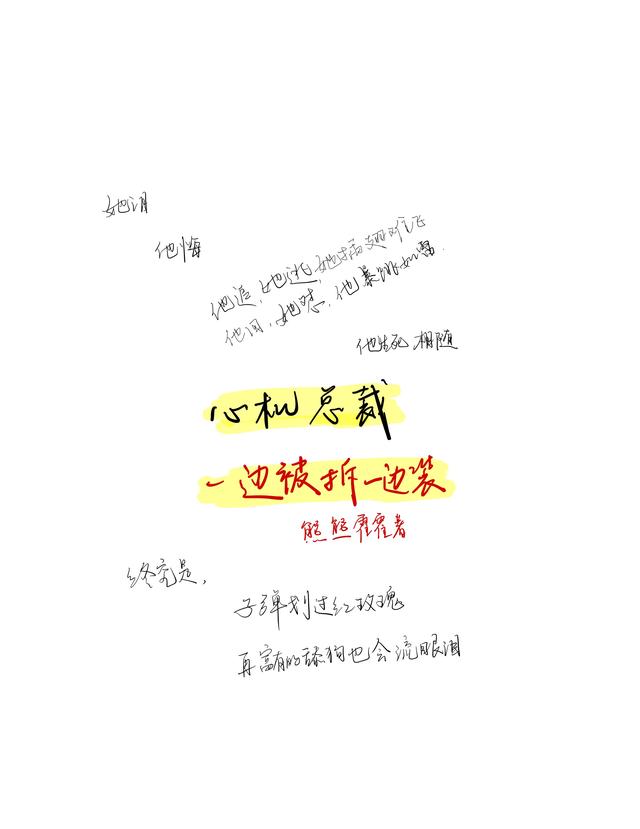 她泪
他悔
他追,她逃,她插翅难飞
他问,她怒,他暴跳如雷.
他生死相随
心机总裁
一边被拆一边装
熊熊霍霍者
终究是,
子弹划过红玫瑰
再富有的舔狗也会流眼泪